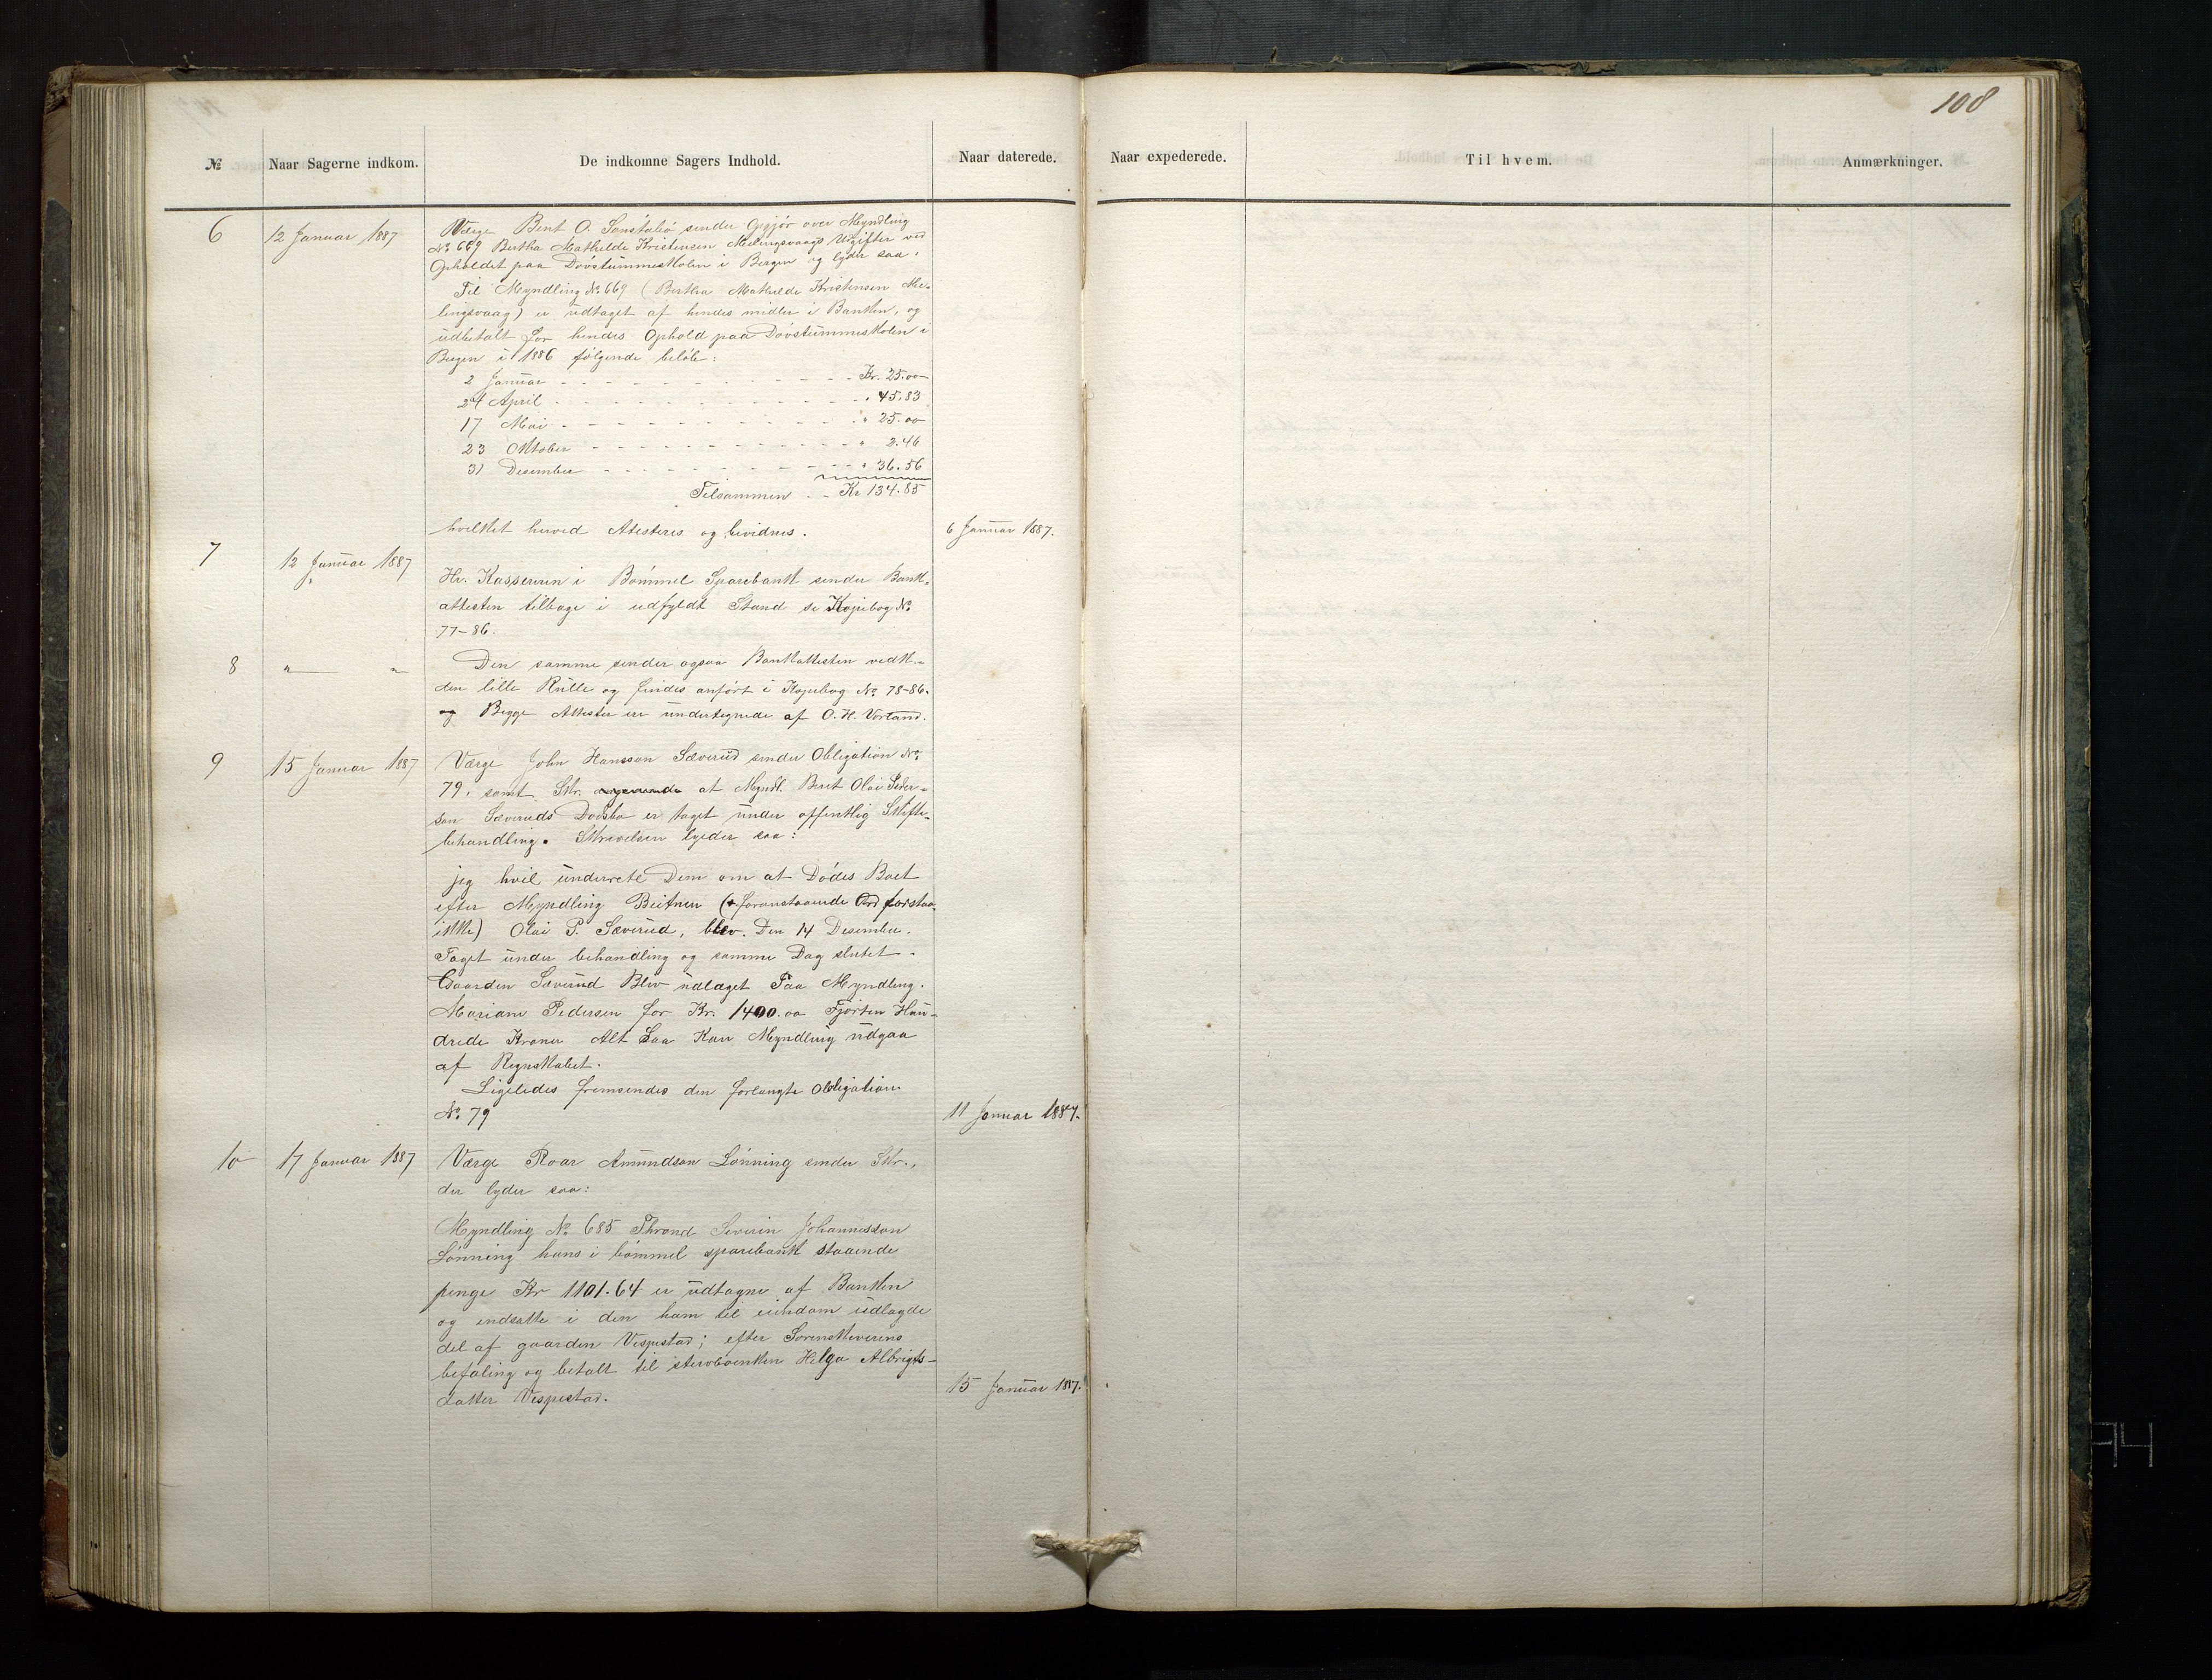 108
№ Naar Sagerne indkom. De indkomne Sagers Indhold. Naar daterede. Naar expederede. Til hvem. Anmærkninger.
6 12 Januar 1887 Værge Bent O. sender over Myndling
№ 669 Bertha Mathilde Kristensen Melingsvaags Utgifter ved
Opholdet paa Døvstummeskolen i Bergen og lyder saa:
Til Myndling № 669 (Bertha Mathilde Kristensen Me-
lingsvaag) er udtaget af hendes midler i Banken, og
udbetalt for hendes Ophold paa Døvstummeskolen i
Bergen i 1886 følgende beløb:
2 Januar Kr. 25.00
24 April " 45.83
17 Mai " 25.00
23 Oktober " 2.46
31 Desember " 36.56
Tilsammen Kr 134.85
hvilket herved Atesteres og bevidnes. 6 Januar 1887.
7 12 Januar 1887
Hr. Kassereren i Bømmel Sparebank sender Bank-
attesten tilbage i udfyldt Stand se Kopibog №
77-86.
8 " " Den samme sender ogsaa Bankattesten vedk.
den lille Rulle og findes anført i Kopibog № 78-86.
og Begge Attester er undertegnede af O. H. Vorland.
9 15 Januar 1887 Værge John Hansson Sæverud sender Obligation №
79. samt Skr. at Myndl. Bent Olai Peder-
son Sæveruds Dødsbo er taget under offentlig Skifte-
behandling. Skrivelsen lyder saa:
jeg hvil underrete Dem om at Dødes Boet
efter Myndling (foranstaaende Ord forstaa
ikke) Olai P. Sæverud, blev. Den 14 Desember.
Taget under behandling og samme Dag slutet.
Gaarden Sæverud Blev udlaget Paa Myndling.
Mariane Pedersen for Kr. 1400.00 Fjorten Hun-
drede Kroner Alt Saa Kan Myndling udgaa
af Regnskabet.
Ligeledes fremsendes den forlangte Obligation
№ 79 11 Januar 1887.
10 17 Januar 1887 Værge Roar Amundson Lønning sender Skr.,
der lyder saa:
Myndling № 685 Thrond Severin Johannesson
Lønning hans i bømmel sparebank staaende
penge Kr 1101.64 er udtagne af Banken
og indsatte i den ham til eiendom udlagde
del af gaarden Vespestad; efter Sorenskriverens
befaling og betalt til Helga Albrigts-
datter Vespestad. 15 Januar 1887.